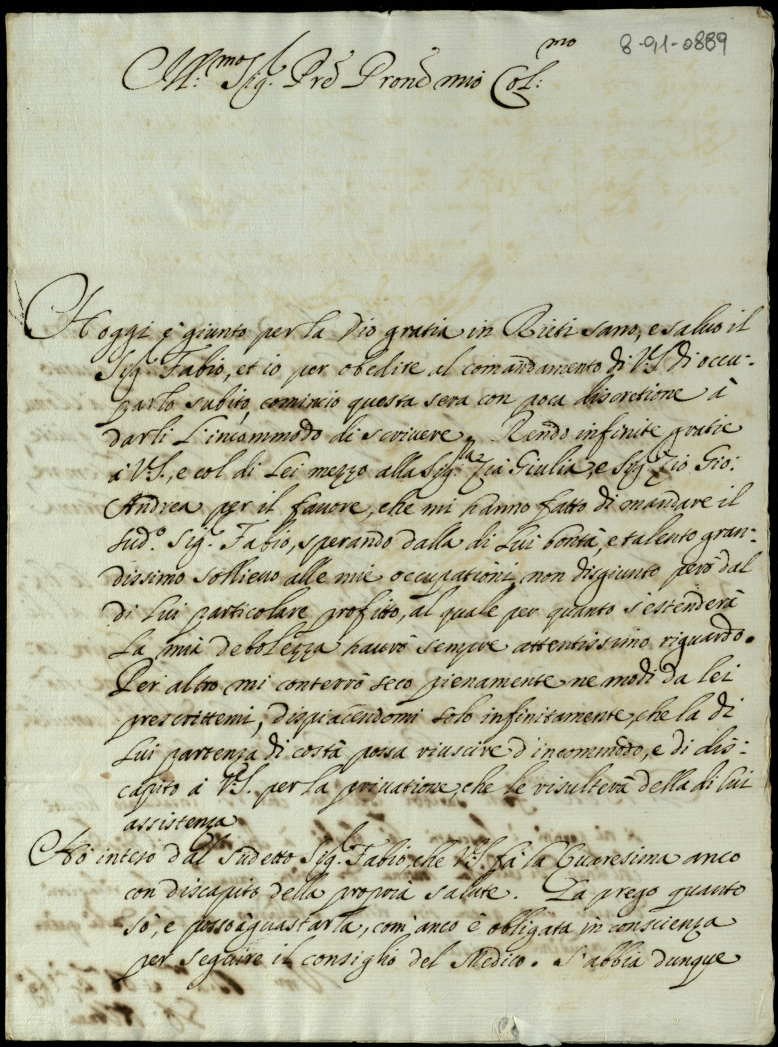 8-91-0889
Ill:mo Sig.r Prē Pronē mio Col:mo
Hoggi è giunto per la Dio gratia in Rieti sano, e salvo il
Sig.r Fabio, et io per obedire al comandamento di V.S. di occu-
parlo subito, comincio questa sera con poca discretione à
darli l'incommodo di scrivere. Rendo infinite gratie
à V.S., e col di Lei mezzo alla Sig.ra Zia Giulia, e Sig.r Zio Gio:
Andrea per il favore, che mi hanno fatto di mandare il
sud.o Sig.r Fabio, sperando dalla di lui bontà, e talento gran-
dissimo sollievo alle mie occupationi, non disgiunto però dal
di lui particolare profitto, al quale per quanto s'estenderà
la mia debolezza haurò sempre attentissimo riguardo.
Per altro mi conterrò seco pienamente ne modi da lei
prescrittemi, dispiacendomi solo infinitamente, che la di
lui partenza di costà possa riuscire d'incommodo, e di dis-
capito à V.S. per la privatione, che le risulterà della di lui
assistenza
Hò inteso dal sudetto Sig.r Fabio, che V.S. fà la Quaresima anco
con discapito della propria salute. La prego quanto
sò, e posso à guastarla, com'anco è obligata in conscienza
per seguire il consiglio del Medico. S'abbia dunque